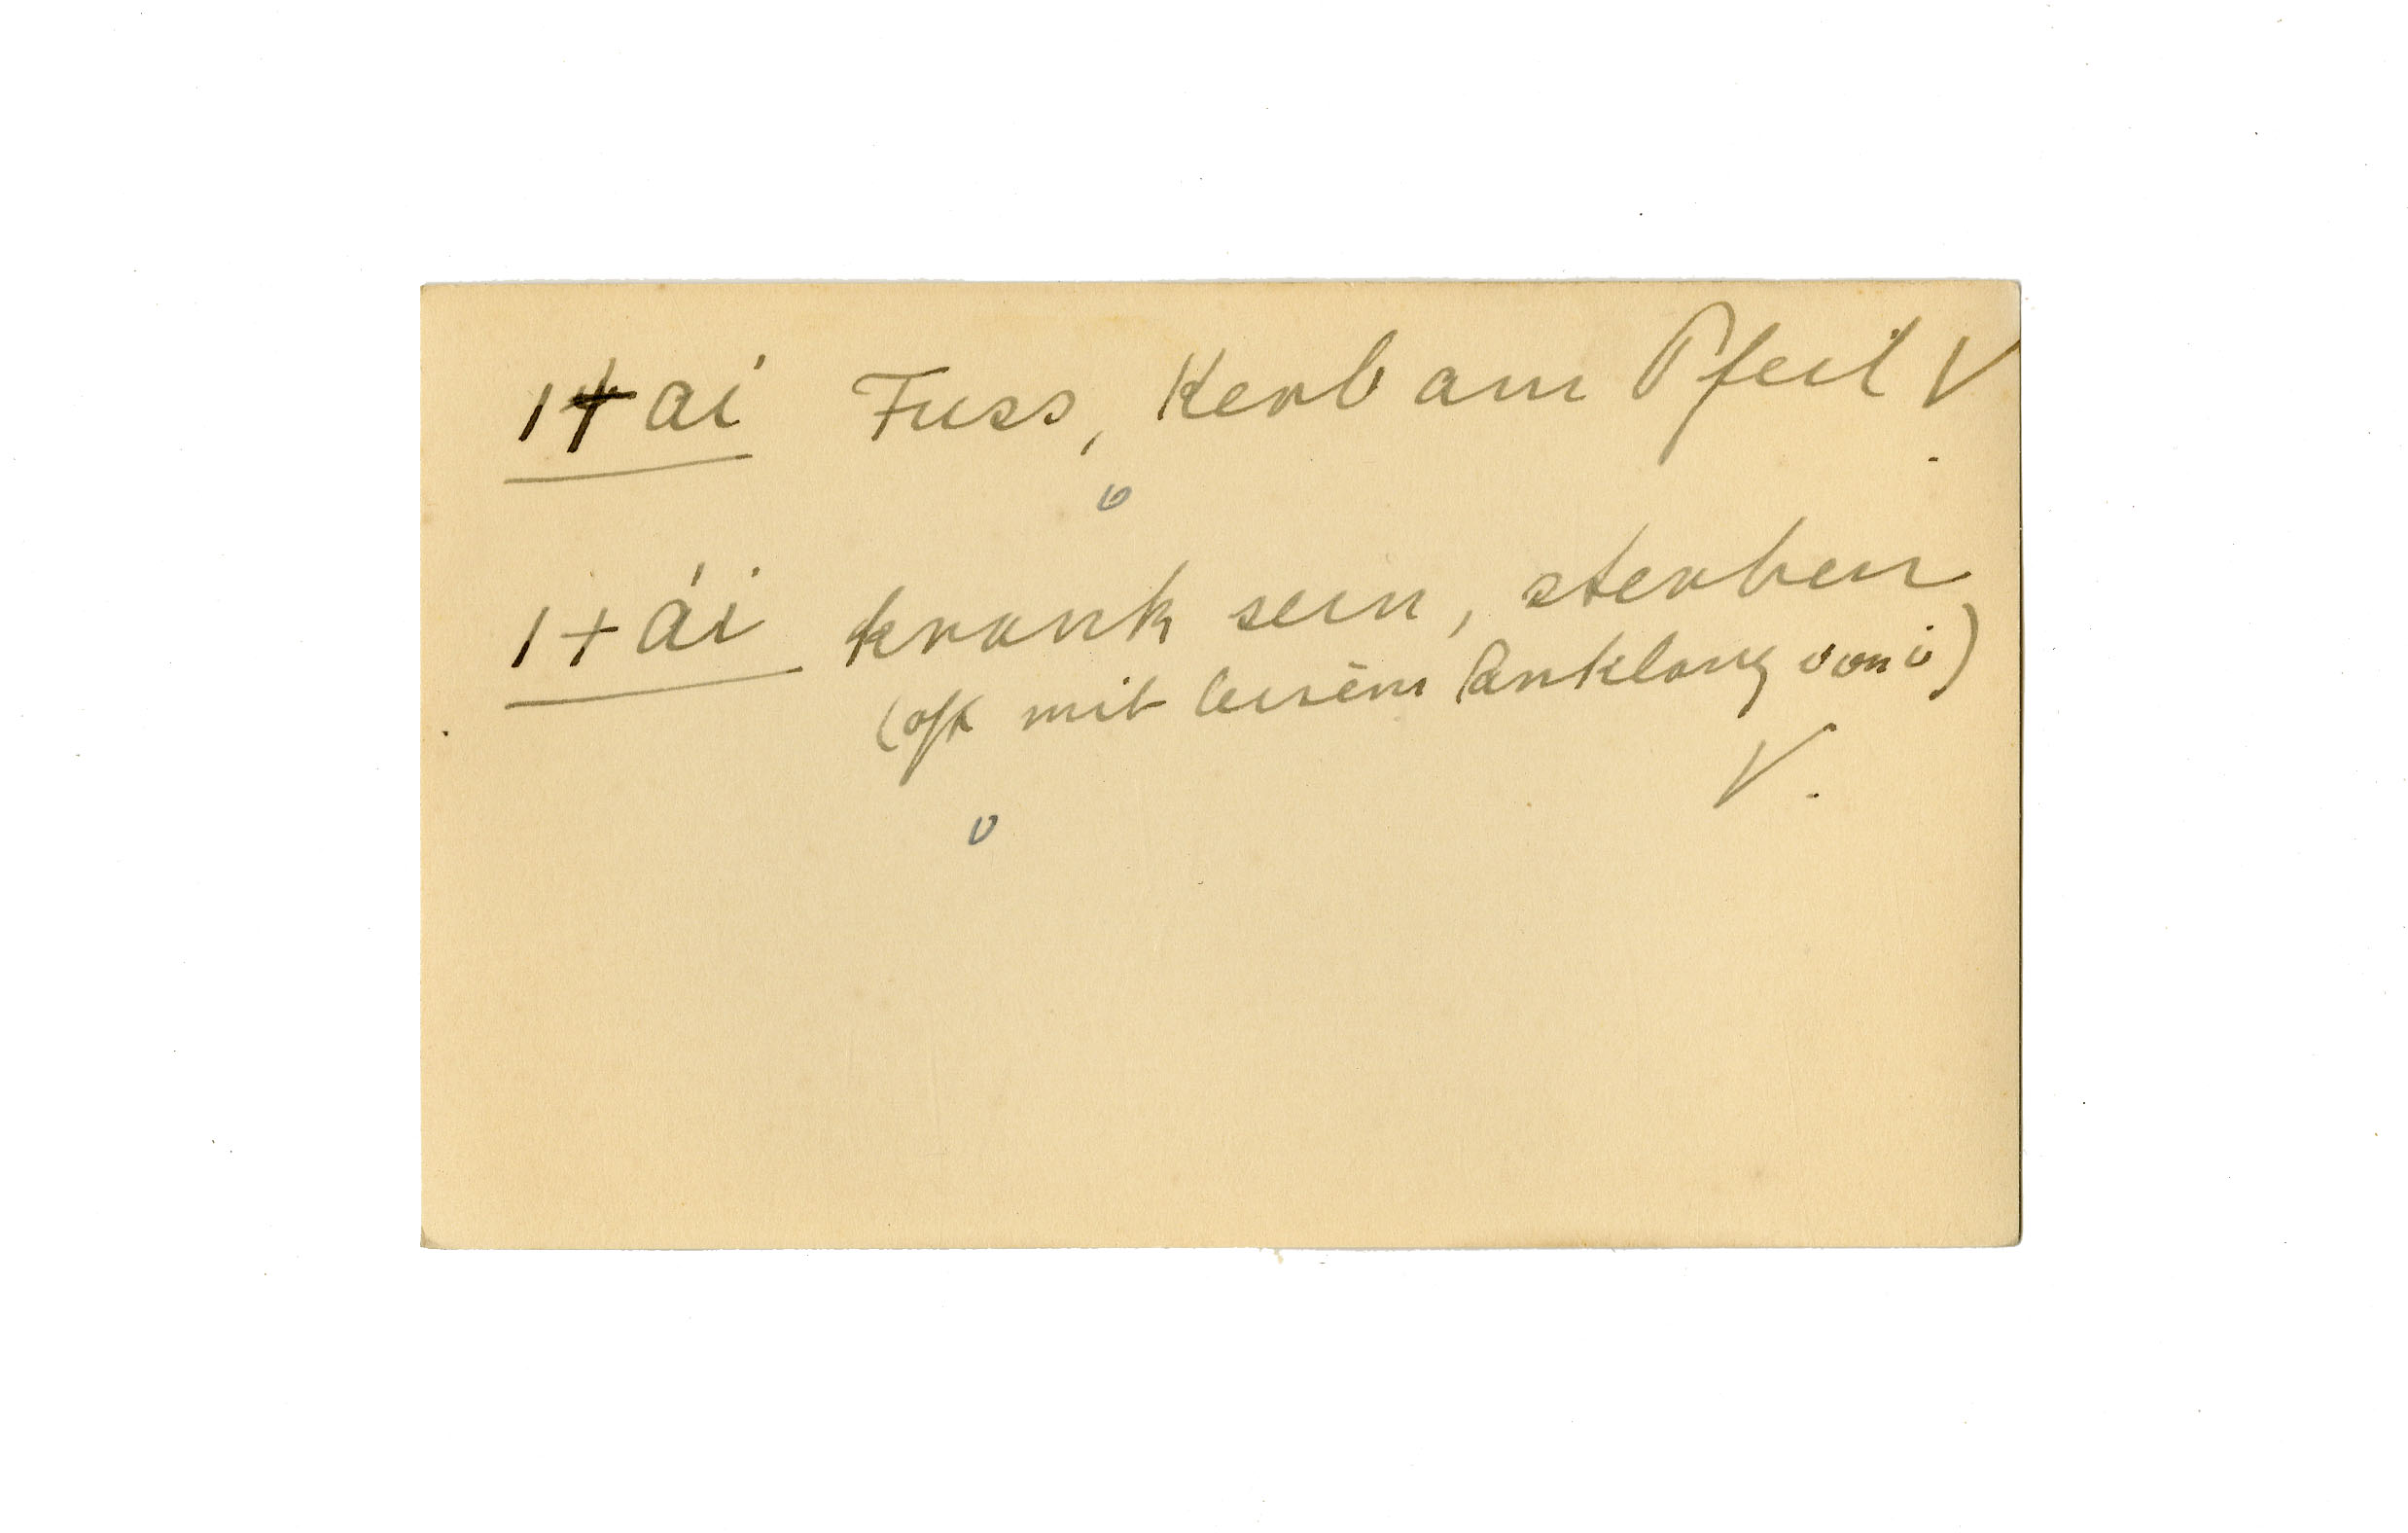 1+ ai Fuss, Kerb am Pfeil V.
1+ ái krank sein, sterben
(oft mit leisem Anklang von i)
V.